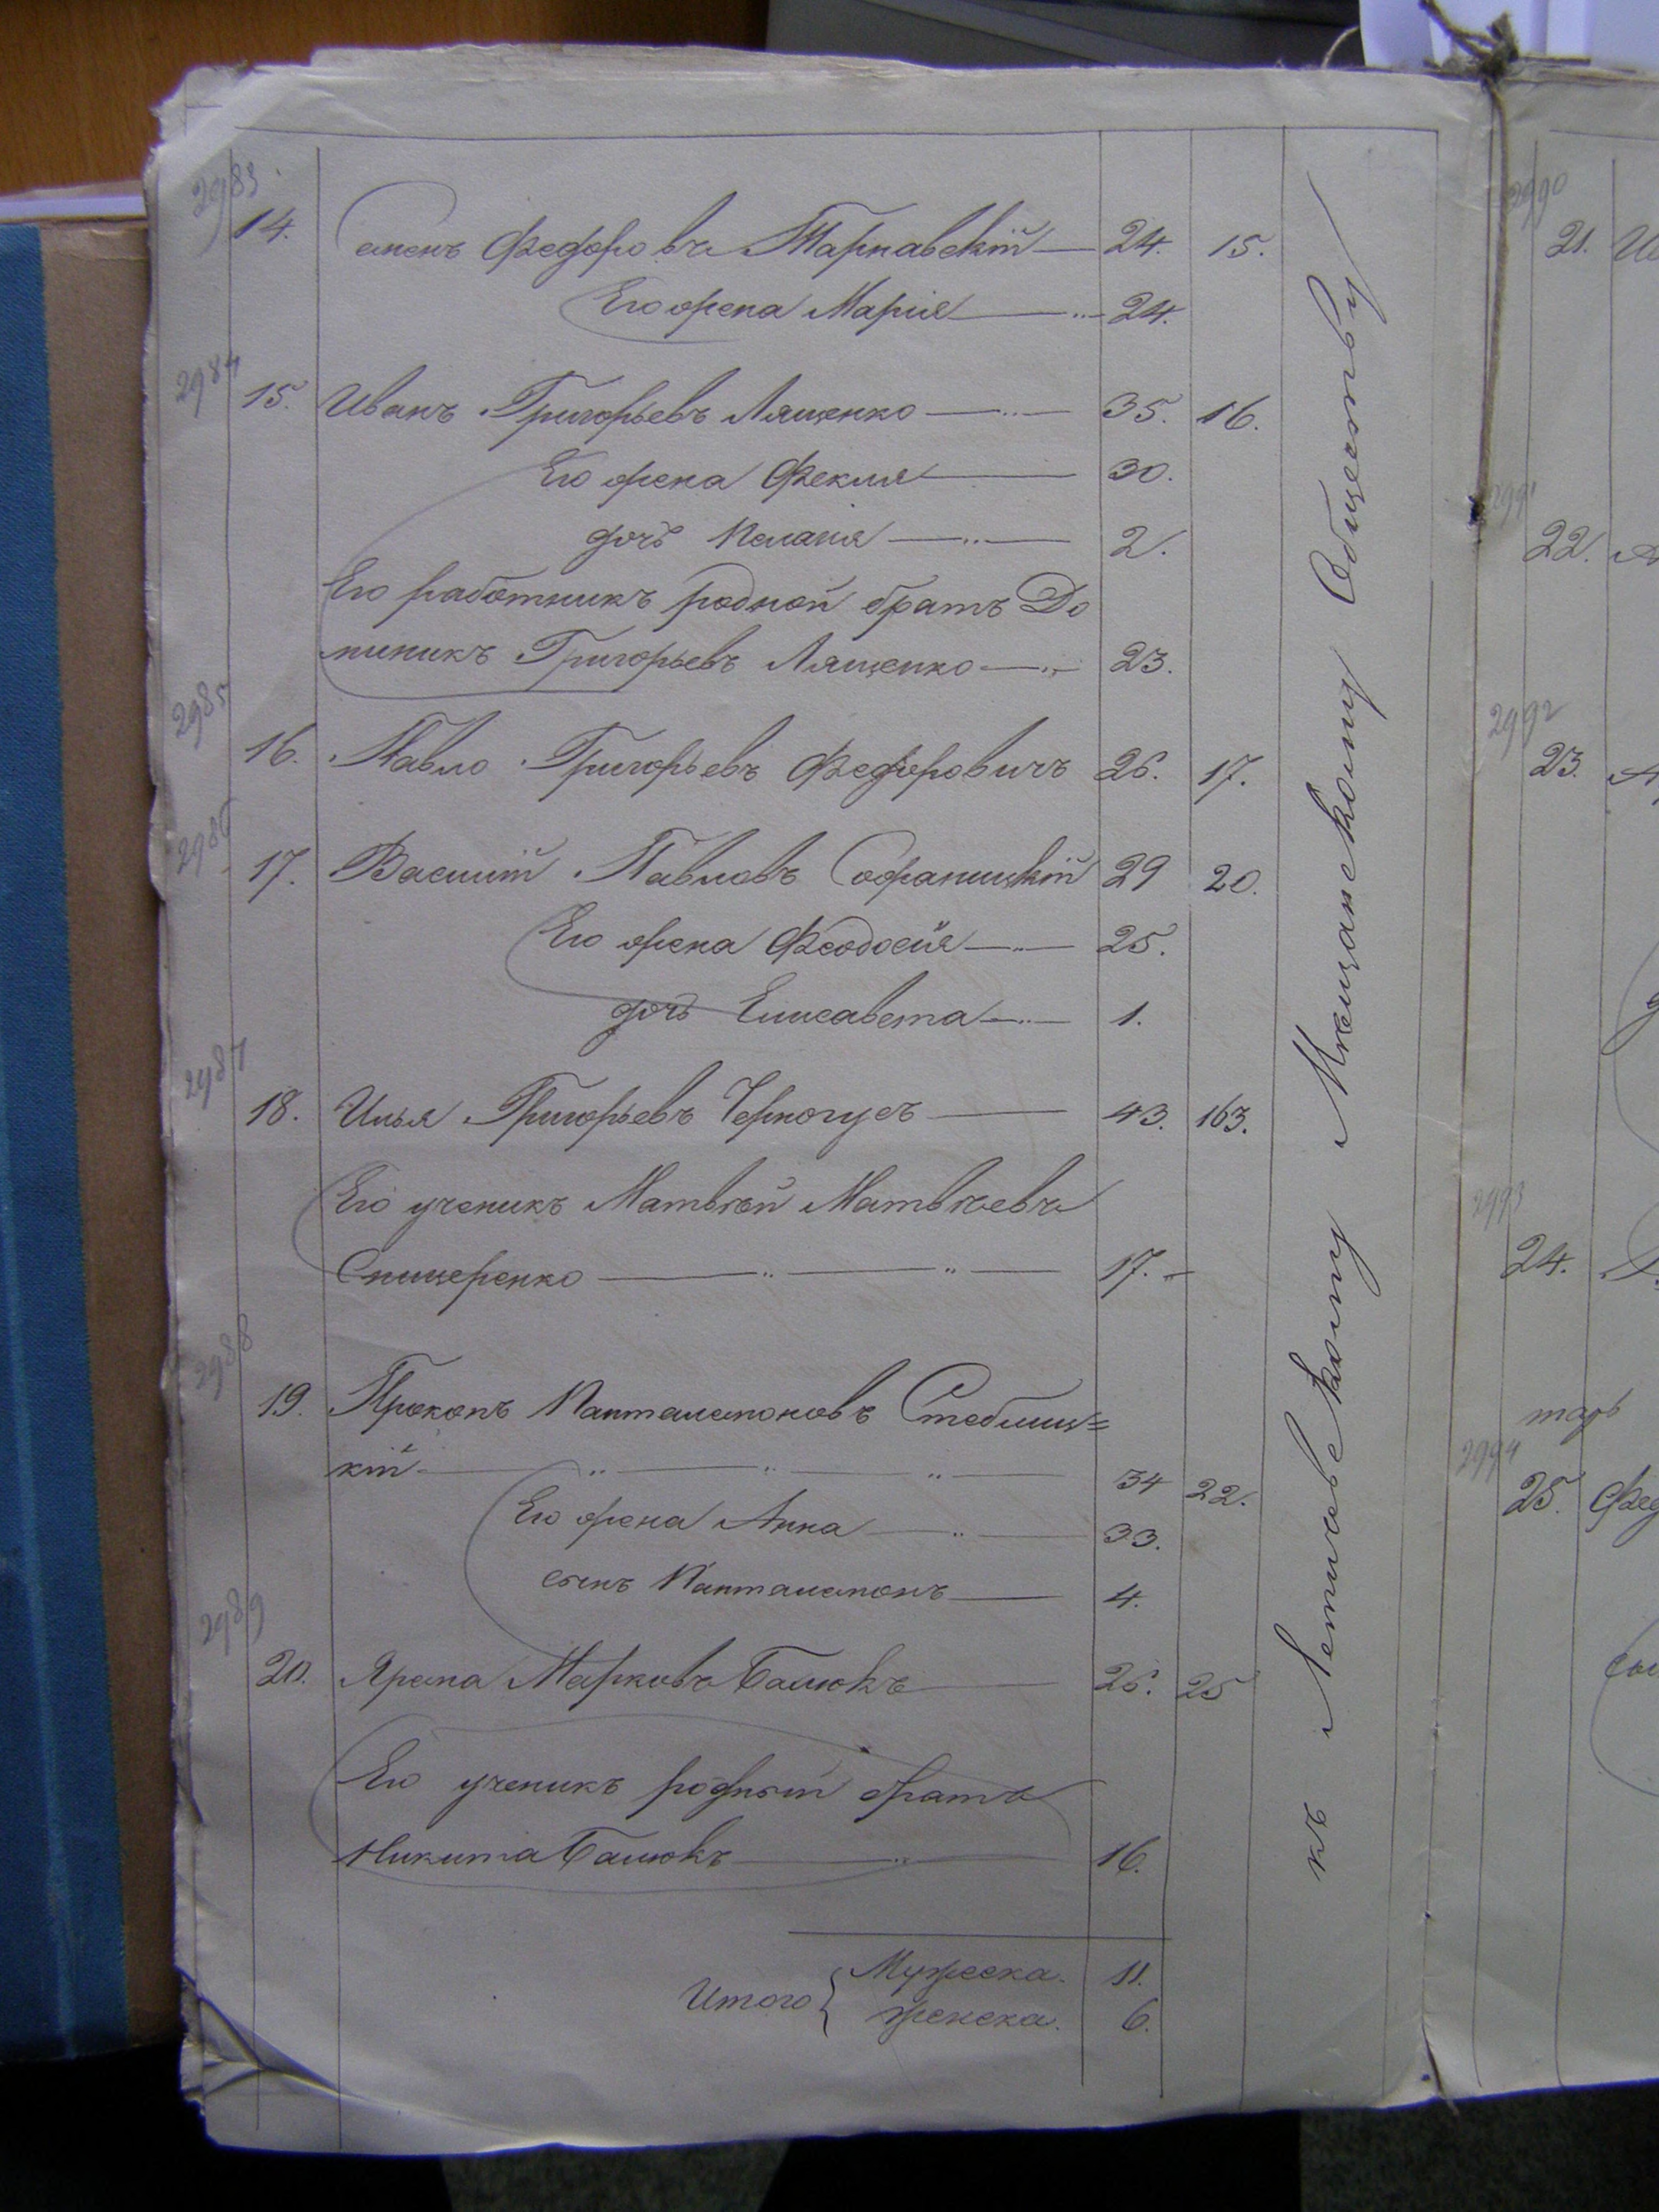 2983
14. Семенъ Федоровъ Тарнавскій 24. 15.
Его жена Марія 24.
2984
15. Иванъ Григорьевъ Лященко 35. 16.
Его жена Фекля 30.
дочь Пелагія 2.
Его работникъ родной братъ До
миникъ Григорьевъ Лященко 23.
2985
16. Павло Григорьевъ Федоровичъ 26. 17.
2986
17. Василій Павловъ 29 20.
Его жена Феодосія 25.
дочь Елисавета 1.
2987
18. Илья Григорьевъ Черногусъ 43. 163.
Его ученикъ Матвѣй Матвѣевъ
17.
2988
19. Прокопъ Пантелемоновъ Стеблиц=
кій 34 22.
Его жена Анна 33.
сынъ Панталемонъ 4.
2989
20. Ярема Марковъ Балюкъ 26. 25
Его ученикъ родный братъ
Никита Балюкъ 16.
Итого { Мужеска. 11.
женска. 6.
къ Летичевскому Мѣщанскому Обществу
2990
21.
2991
22.
2992
23.
2993
24.
2994
25. Фед